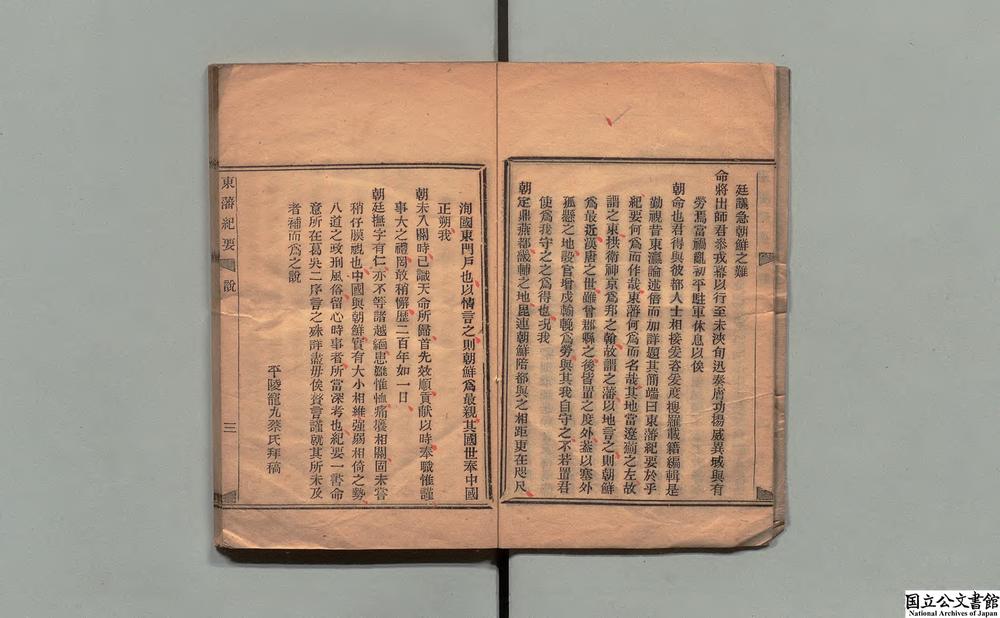 廷議急朝鮮之難
命將出師君參戎幕以行至未浹旬迅奏膚功揚威異域與有
勞焉當禍亂初平駐軍休息以俟
朝命也君得與彼都人士相接爰咨爰度搜羅載籍編輯是
勤視昔東瀛論述倍而加詳題其簡端曰東藩紀要於乎
紀要何爲而作哉東藩何爲而名哉其地當遼薊之左故
謂之東拱衛神京爲邦之翰故謂之藩以地言之則朝鮮
爲最近漢唐之世雖曾郡縣之後皆置之度外蓋以塞外
孤懸之地設官增戍輸輓爲勞與其我自守之不若置君
使爲我守之之爲得也況我
朝定鼎燕都畿輔之地毘連朝鮮陪都與之相距更在咫尺
洵國東門戶也以情言之則朝鮮爲最親其國世奉中國
正朔我
朝未入關時已識天命所歸首先效順貢獻以時奉職惟謹
事大之禮罔敢稍懈歷二百年如一日
朝廷撫字有仁亦不等諸越絕患難惟恤痛癢相關固未嘗
稍仔膜視也中國與朝鮮實有大小相維強弱相倚之勢
八道之政刑風俗留心時事者所當深考也紀要一書命
意所在葛吳二序言之殊詳盡毋俟贅言謹就其所未及
者補而爲之說
平陵寵九蔡氏拜稿
東藩紀要
說
三
国立公文書館
National Archives of Japan